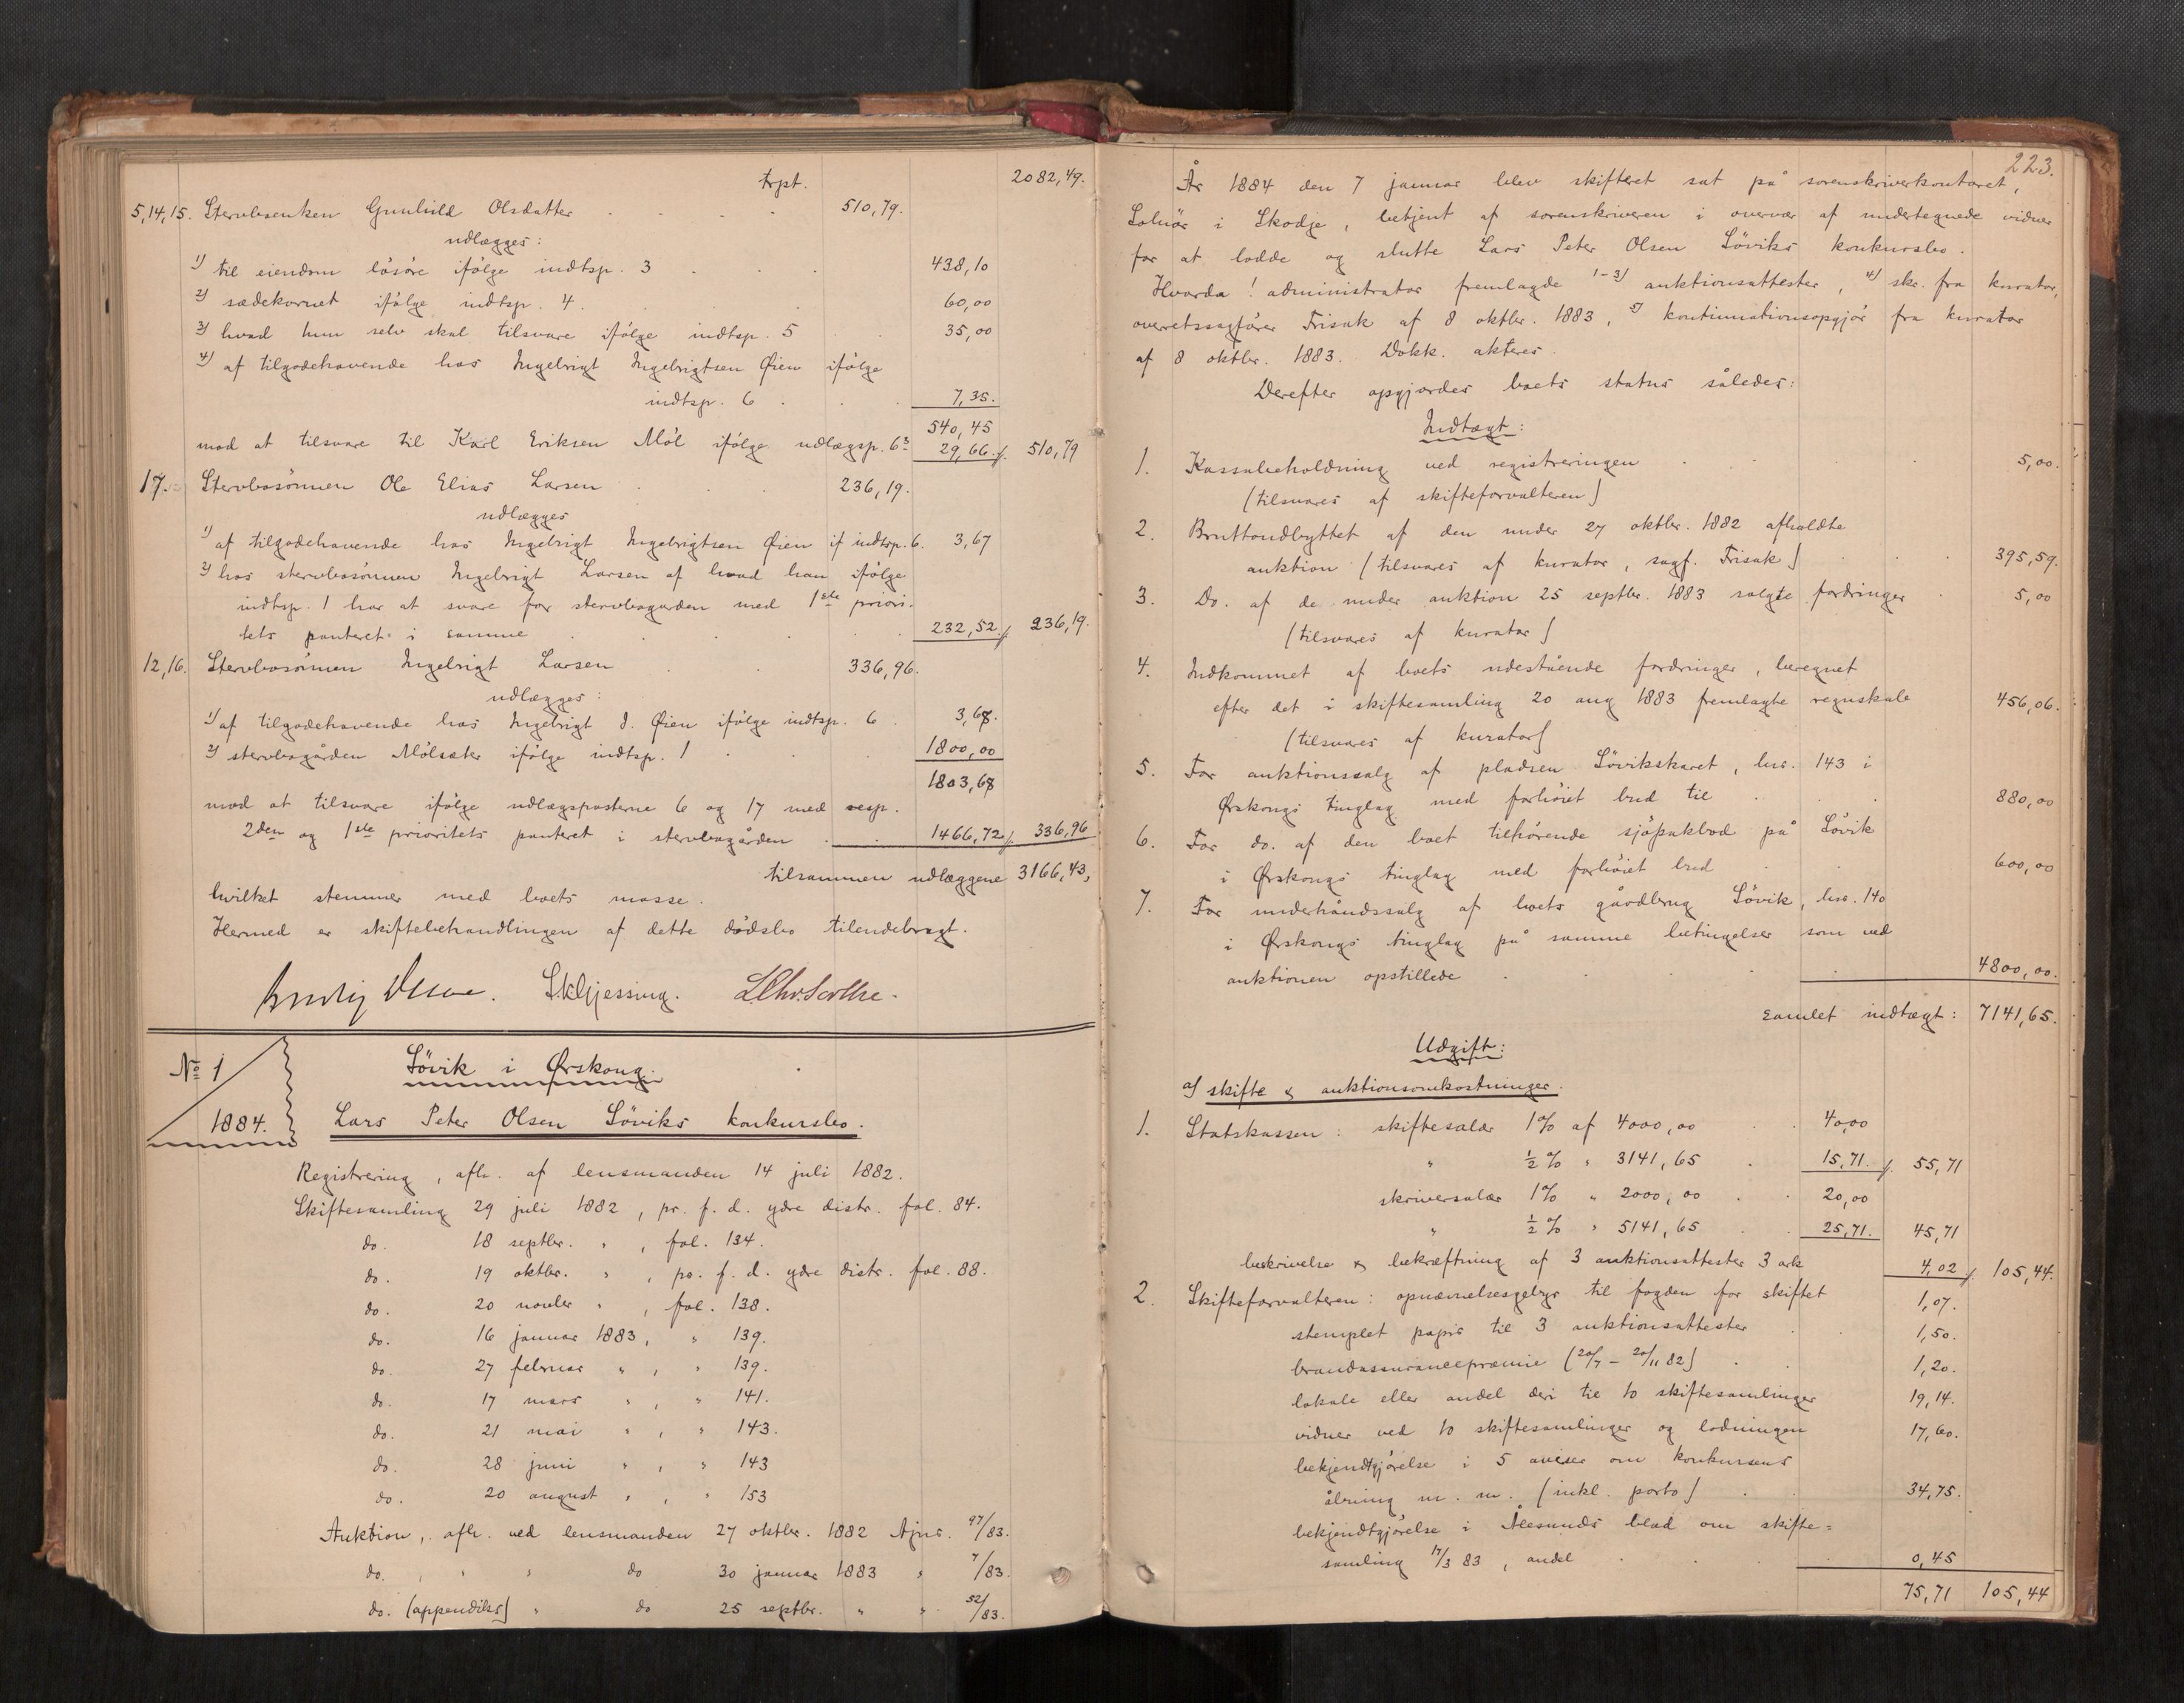 trpt. 2082,49.
5,14,15. Stervboenken Gunhild Olsdatter . . . . 510,79.
udlægges:
1) til eiendom løsöre ifölge indtsp. 3 . . . 438,10
2) sædekornet ifölge indtsp. 4. . . 60,00
3) hvad hun selv skal tilsvare ifölge indtsp. 5 . 35,00
4) af tilgodehavende hos Ingebrigt Ingebrigtsen Øien ifölge
indtsp. 6 . . . 7,35.
540,45
mod at tilsvare til Karl Eriksen Möl ifölge udlægsp. 6 29,66 ./. 510,79
17. Stervbosönnen Ole Elias Larsen . . 236,19.
udlægges
1) af tilgodehavende hos Ingebrigt Ingebrigtsen Øien if indtsp. 6. 3,67
2) hos stervbosönnen Ingebrigt Larsen af hvad han ifölge
indtsp. 1 har at svare for stervbogården med 1ste priori-
tets panteret i samme . . . . 232,52 ./. 236,19.
12,16. Stervbosönnen Ingebrigt Larsen . . 336,96.
udlægges:
1) af tilgodehavende hos Ingebrigt I. Øien ifölge indtsp. 6 . 3,68.
2) stervbogården Mölsæter ifölge indtsp. 1 . . . 1800,00
1803,68
mod at tilsvare ifölge udlægsposterne 6 og 17 med resp.
2den og 1ste prioritets panteret i stervbogården . . 1466,72 ./. 336,96
tilsammen udlæggene 3166,43,
hvilket stemmer med boets masse.
Hermed er skiftebehandlingen af dette dödsbo tilendebragt.
S.K. Gjessing.
No 1
1884.
Sövik i Ørskoug.
Lars Peter Olsen Söviks konkursbo.
Registrering, afh. af lensmanden 14 juli 1882.
Skiftesamling 29 juli 1882, pr. f. d. ydre distr. fol. 84.
do. 18 septbr. " , fol. 134.
do. 19 oktbr. " , pr. f. d. ydre distr. fol. 88.
do. 20 novbr " , fol. 138.
do. 16 januar 1883, " 139.
do. 27 februar " , " 139.
do. 17 mars " , " 141.
do. 21 mai " , " 143.
do. 28 juni " , " 143
do. 20 august " , " 153
Auktion, afh. ved lensmanden 27 oktbr. 1882 Ajnr. 97/83.
do. , " " do 30 januar 1883 " 7/83.
do. (appendiks) " do 25 septbr. " " 52/83.
223.
År 1884 den 7 januar blev skifteret sat på sorenskriverkontoret,
Solnör i Skodje, betjent af sorenskriveren i overvær af undertegnede vidner
for at lodde og slutte Lars Peter Olsen Söviks konkursbo.
Hvorda! administrator fremlagde 1-3) auktionsattester, 4) skr. fra kurator,
overretssagförer Frisak af 8 oktbr. 1883, 5) kontinuationsopgjör fra kurator
af 8 oktbr. 1883. Dokk. akteres.
Derefter opgjordes boets status således:
Indtægt:
1. Kassabeholdning ved registreringen . . . . 5,00.
(tilsvares af skifteforvalteren)
2. Bruttoudbyttet af den under 27 oktbr. 1882 afholdte
auktion (tilsvares af kurator, sagf. Frisak) . . . 395,59.
3. Do. af de under auktion 25 septbr. 1883 solgte fordringer . 5,00
(tilsvares af kurator)
4. Indkommet af boets udestående fordringer, beregnet
efter det i skiftesamling 20 aug 1883 fremlagte regnskab 456,06.
(tilsvares af kurator)
5. For auktionssalg af pladsen Sövikskaret, lnr. 143 i
Ørskougs tinglag med forhöiet bud til . . . 880,00
6. For do. af den boet tilhörende sjöpakbod på Sövik
i Ørskougs tinglag med forhöiet bud . . 600,00
7. For underhåndssalg af boets gårdbrug Sövik, lnr. 140
i Ørskougs tinglag på samme betingelser som ved
auktionen opstillede . . . . 4800,00.
samlet indtægt: 7141,65.
Udgift:
a) skifte & auktionsomkostninger.
1. Statskassen: skiftesalær 1% af 4000,00 . . 40,00
" 1/2 % " 3141,65 . 15,71. ./. 55,71
skriversalær 1% " 2000,00 . . 20,00
" 1/2 % " 5141,65 . . 25,71. 45,71
beskrivelse & bekræftning af 3 auktionsattester 3 ark 4,02 ./. 105,44.
2. Skifteforvalteren: opnævnelsesgebyr til fogden for skiftet 1,07.
stemplet papir til 3 auktionsattester . 1,50.
brandassurancepræmie (20/7 - 20/11 82) . . 1,20.
lokale eller andel deri til 10 skiftesamlinger 19,14.
vidner ved 10 skiftesamlinger og lodningen 17,60.
bekjendtgjörelse i 5 aviser om konkursens
åbning m. m. (inkl. porto) . . 34,75.
bekjendtgjörelse i Ålesunds blad om skifte=
samling 17/3 83, andel . . . 0,45
75,71 105,44